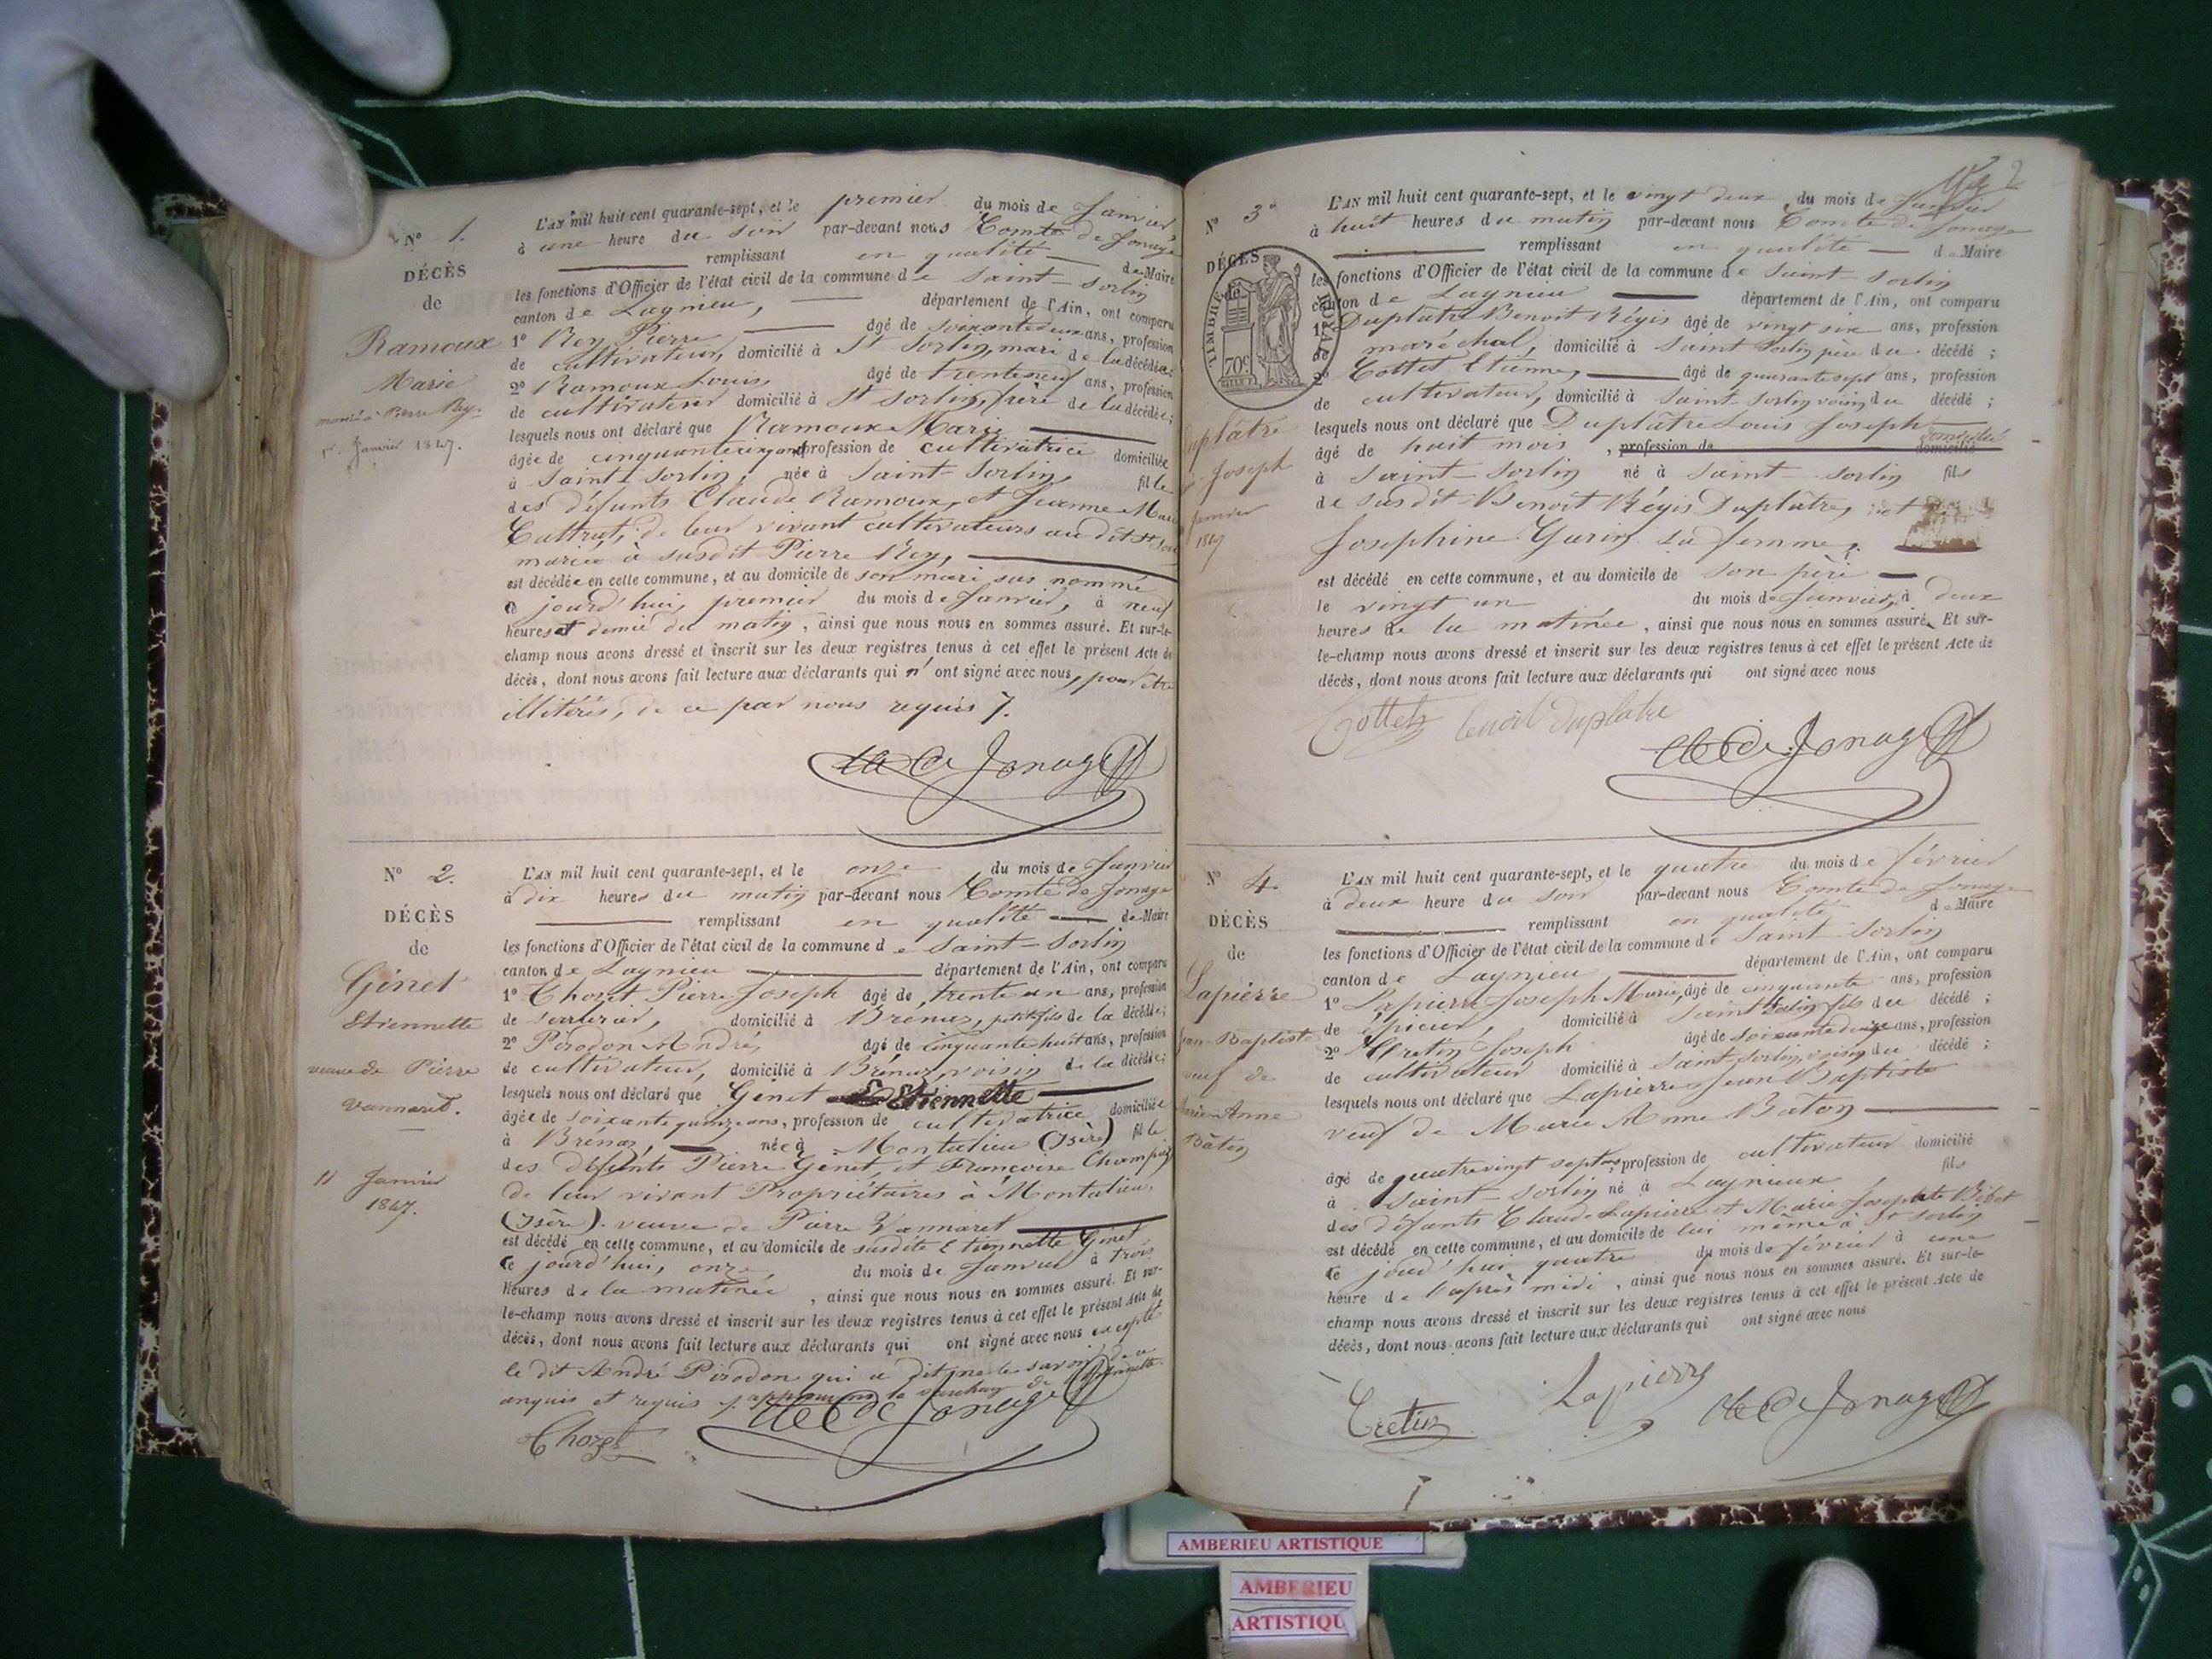 N° 1.
DÉCÈS
de
Ramoux
Marie
mariée à Pierre Rey
1er Janvier 1847.
L'AN mil huit cent quarante-sept, et le premier du mois de Janvier
à une heure du soir par-devant nous Comte de Jonage
remplissant en qualité de Maire
les fonctions d'Officier de l'état civil de la commune de Saint-Sorlin
canton de Lagnieu, département de l'Ain, ont comparu
1° Rey Pierre âgé de soixante deux ans, profession
de cultivateur, domicilié à St Sorlin, mari de la décédée;
2° Ramoux Louis, âgé de trente neuf ans, profession
de cultivateur domicilié à St Sorlin, frère de la décédée;
lesquels nous ont déclaré que Ramoux Marie
âgée de cinquante six ans profession de cultivatrice domiciliée
à Saint Sorlin, née à Saint-Sorlin, fille
des défunts Claude Ramoux, et Jeanne Marie
de leur vivant cultivateurs au dit St Sor
mariée à susdit Pierre Rey,
est décédée en cette commune, et au domicile de son mari sus nommé
ce jourd'hui, premier du mois de Janvier, à neuf
heures et demie du matin, ainsi que nous nous en sommes assuré. Et sur-le-
champ nous avons dressé et inscrit sur les deux registres tenus à cet effet le présent Acte de
décès, dont nous avons fait lecture aux déclarants qui n'ont signé avec nous, pour être
illitérés, de ce par nous requis.
Cte de Jonage
N° 2.
DÉCÈS
de
Ginet
Etiennette
veuve de Pierre
Vannaret.
11 Janvier
1847.
L'AN mil huit cent quarante-sept, et le onze du mois de Janvier
à dix heures du matin par-devant nous Comte de Jonage
remplissant en qualité de Maire
les fonctions d'Officier de l'état civil de la commune de Saint-Sorlin
canton de Lagnieu département de l'Ain, ont comparu
1° Chozet Pierre Joseph âgé de trente un ans, profession
de serrurier, domicilié à Brénaz, petit fils de la décédée;
2° Pirodon André, âgé de cinquante huit ans, profession
de cultivateur, domicilié à Brénaz, voisin de la décédée;
lesquels nous ont déclaré que Ginet Etiennette
âgée de soixante quinze ans, profession de cultivatrice domiciliée
à Brénaz, née à Montalieu (Isère) fille
des défunts Pierre Ginet et Françoise
de leur vivant Propriétaires à Montalieu,
(Isère). veuve de Pierre Vannaret
est décédé en cette commune, et au domicile de susdite Etiennette Ginet
ce jourd'hui, onze, du mois de Janvier à trois
heures de la matinée, ainsi que nous nous en sommes assuré. Et sur-
le-champ nous avons dressé et inscrit sur les deux registres tenus à cet effet le présent Acte de
décès, dont nous avons fait lecture aux déclarants qui ont signé avec nous excepté
le dit André Pirodon qui a dit ne le savoir de ce
enquis et requis, approuvons la surcharge de Etiennette
Chozet Cte de Jonage
2
N° 3°
DÉCÈS
de
TIMBRE ROYAL
70c
Duplâtre
Joseph
Janvier
1847
L'AN mil huit cent quarante-sept, et le vingt deux du mois de Janvier
à huit heures du matin par-devant nous Comte de Jonage
remplissant en qualité de Maire
les fonctions d'Officier de l'état civil de la commune de Saint Sorlin
canton de Lagnieu département de l'Ain, ont comparu
1° Duplatre Benoit Régis âgé de vingt six ans, profession
de maréchal, domicilié à Saint Sorlin père du décédé;
2° Cottet Etienne, âgé de quarante sept ans, profession
de cultivateur, domicilié à Saint-Sorlin voisin du décédé;
lesquels nous ont déclaré que Duplâtre Louis Joseph
âgé de huit mois, profession de domicilié domicilié
à Saint-Sorlin né à Saint-Sorlin fils
de susdit Benoit Régis Duplâtre, et
Josephine Gurin sa femme,
est décédé en cette commune, et au domicile de son père
le vingt un du mois de Janvier, à deux
heures de la matinée, ainsi que nous nous en sommes assuré. Et sur-
le-champ nous avons dressé et inscrit sur les deux registres tenus à cet effet le présent Acte de
décès, dont nous avons fait lecture aux déclarants qui ont signé avec nous
Cottet benoit Duplatre
Cte de Jonage
N° 4.
DÉCÈS
de
Lapierre
Jean-Baptiste
veuf de
Marie-Anne
Bâton
L'AN mil huit cent quarante-sept, et le quatre du mois de février
à deux heure du soir par-devant nous Comte de Jonage
remplissant en qualité de Maire
les fonctions d'Officier de l'état civil de la commune de Saint Sorlin
canton de Lagnieu département de l'Ain, ont comparu
1° Lapierre Joseph Marie, âgé de cinquante ans, profession
de épicier, domicilié à Saint Sorlin fils du décédé;
2° Cretin Joseph âgé de soixante ans, profession
de cultivateur domicilié à Saint Sorlin, voisin du décédé;
lesquels nous ont déclaré que Lapierre Jean Baptiste
veuf de Marie Anne Bâton
âgé de quatre vingt sept ans, profession de cultivateur domicilié
à Saint-Sorlin né à Lagnieux fils
des défunts Claude Lapierre et Marie
est décédé en cette commune, et au domicile de lui même à St Sorlin
ce jourd'hui quatre du mois de février à une
heure de l'après midi, ainsi que nous nous en sommes assuré. Et sur-le-
champ nous avons dressé et inscrit sur les deux registres tenus à cet effet le présent Acte de
décès, dont nous avons fait lecture aux déclarants qui ont signé avec nous
Cretin Lapierre Cte de Jonage
AMBERIEU ARTISTIQUE
AMBERIEU
ARTISTIQU